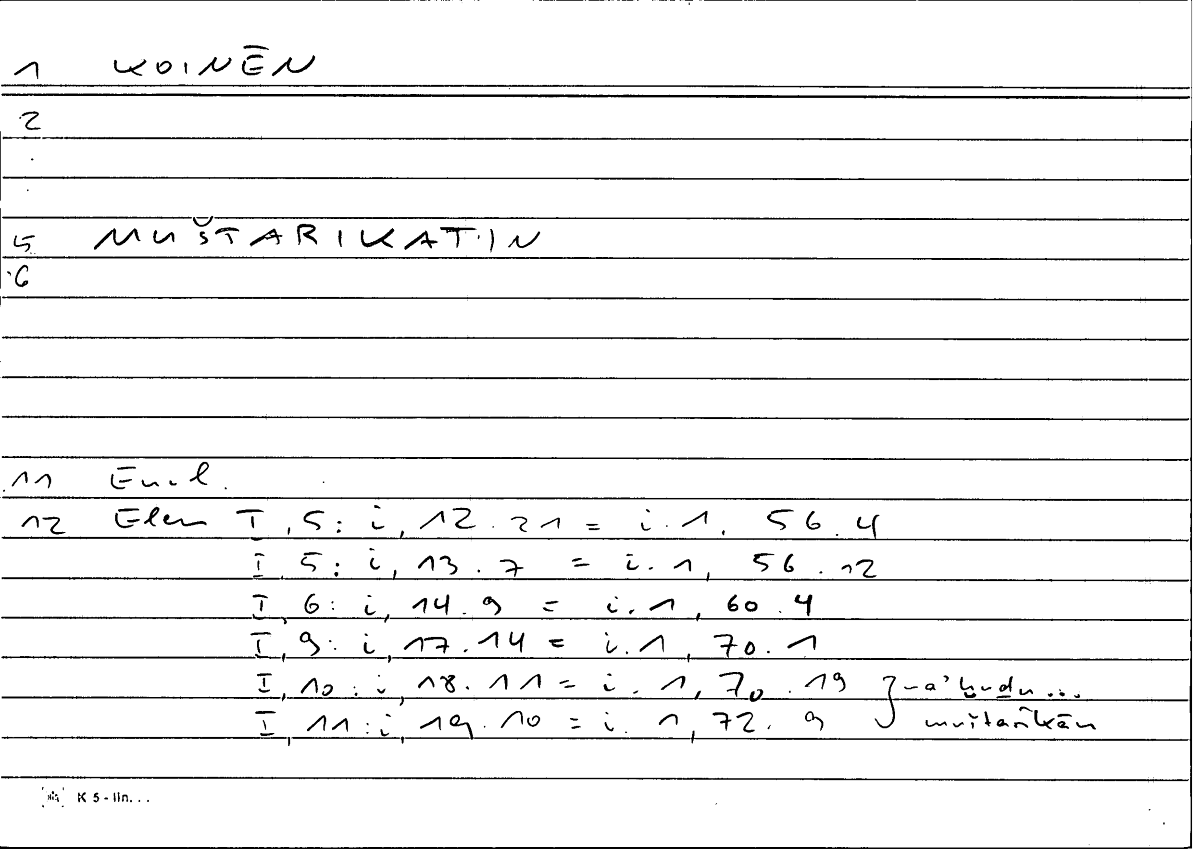 1 KOINĒN
2
5 MUŠTARIKATIN
6
11 Eucl.
12 Elem I, 5: i, 12.21 = i.1, 56.4
I, 5: i, 13.7 = i.1, 56.12
I, 6: i, 14.9 = i.1, 60.4
I, 9: i, 17.14 = i.1, 70.1
I, 10: i, 18.11 = i.1, 70.19 } na'ḫuḏu...
I, 11: i, 19.10 = i.1, 72.9 muštarikan
K 5 - lin...